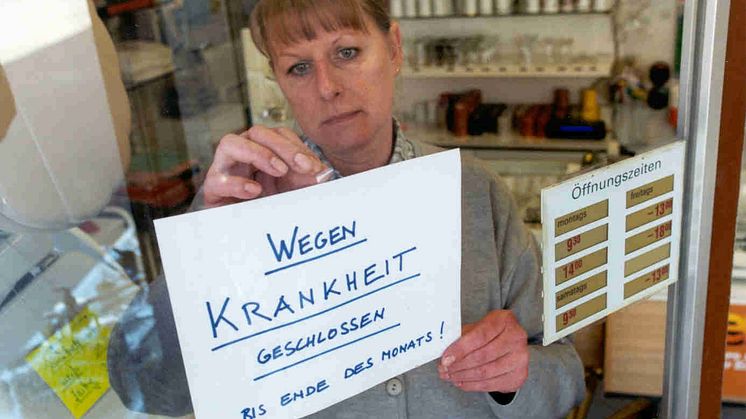 WEGEN
KRANKHEIT
GESCHLOSSEN
BIS ENDE DES MONATS!
Öffnungszeiten
montags freitags
9³⁰ -13⁰⁰
14⁰⁰ -18⁰⁰
samstags
9³⁰ -13⁰⁰